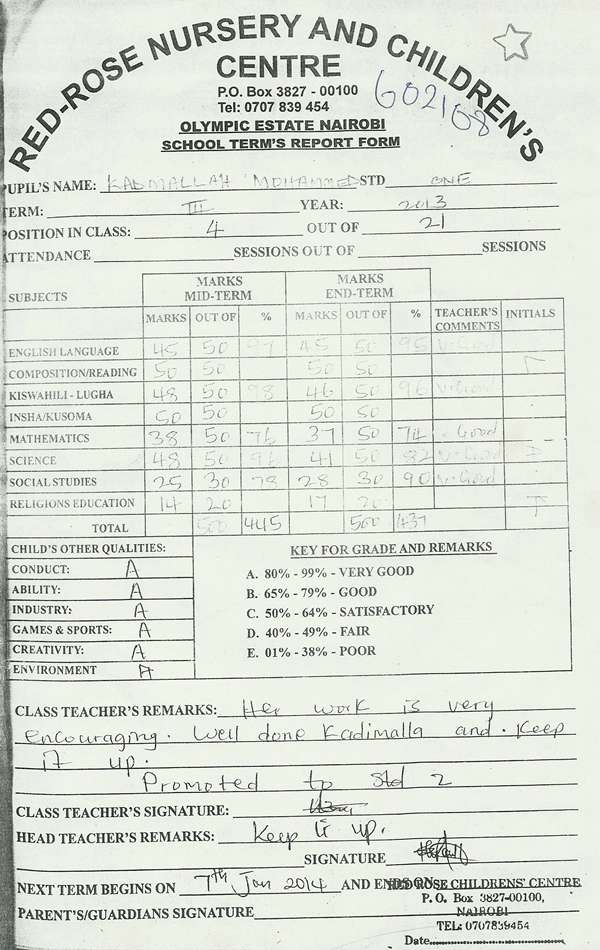 RED-ROSE NURSERY AND CHILDREN'S
CENTRE
P.O. Box 3827 - 00100
Tel: 0707 839 454
602168
OLYMPIC ESTATE NAIROBI
SCHOOL TERM'S REPORT FORM
PUPIL'S NAME: KADMALLAH MOHAMMED STD ONE
TERM: III YEAR: 2013
POSITION IN CLASS: 4 OUT OF 21
ATTENDANCE SESSIONS OUT OF SESSIONS
SUBJECTS MARKS MID-TERM MARKS END-TERM
MARKS OUT OF % MARKS OUT OF % TEACHER'S COMMENTS INITIALS
ENGLISH LANGUAGE 45 50 97 45 50 95 V.Good
COMPOSITION/READING 50 50 50 50
KISWAHILI - LUGHA 48 50 98 46 50 96 V.Good
INSHA/KUSOMA 50 50 50 50
MATHEMATICS 38 50 76 37 50 74 Good
SCIENCE 48 50 96 41 50 82 V.Good
SOCIAL STUDIES 25 30 78 28 30 90 V.Good
RELIGIONS EDUCATION 14 20 17 20
TOTAL 500 445 500 437
CHILD'S OTHER QUALITIES:
CONDUCT: A
ABILITY: A
INDUSTRY: A
GAMES & SPORTS: A
CREATIVITY: A
ENVIRONMENT A
KEY FOR GRADE AND REMARKS
A. 80% - 99% - VERY GOOD
B. 65% - 79% - GOOD
C. 50% - 64% - SATISFACTORY
D. 40% - 49% - FAIR
E. 01% - 38% - POOR
CLASS TEACHER'S REMARKS: Her work is very
encouraging. Well done Kadimalla and. Keep
it up.
Promoted to Std 2
CLASS TEACHER'S SIGNATURE:
HEAD TEACHER'S REMARKS: Keep it up.
SIGNATURE
NEXT TERM BEGINS ON 7th Jan 2014 AND ENDS ON
RED ROSE CHILDRENS' CENTRE
P. O. Box 3827-00100,
NAIROBI
PARENT'S/GUARDIANS SIGNATURE
TEL: 0707839454
Date